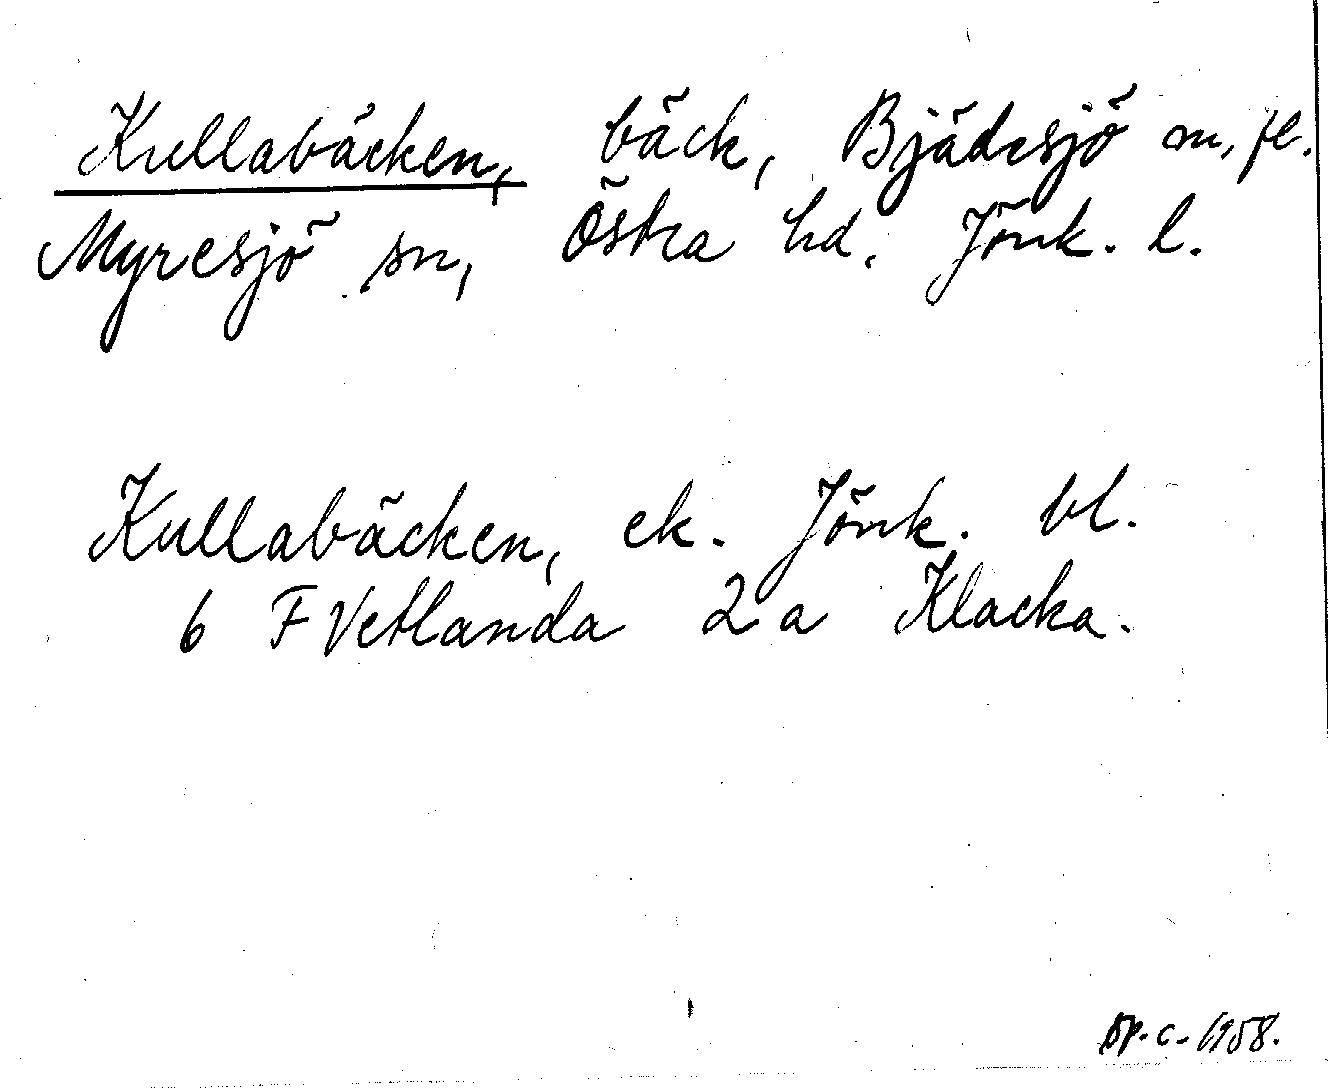 Kullabäcken, bäck, Bjädesjö m. fl.
Myresjö sn, Östra hd. Jönk. l.
Kullabäcken, ek. Jönk. bl.
6 F Vetlanda 2 a Klacka.
1958.